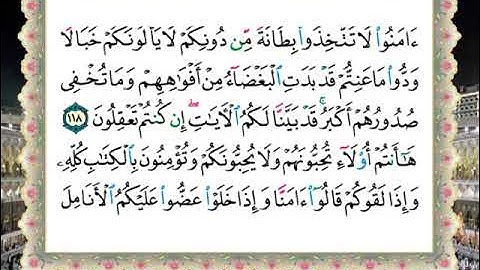 ءَامَنُوا۟ لَا تَتَّخِذُوا۟ بِطَانَةً مِّن دُونِكُمْ لَا يَأْلُونَكُمْ خَبَالًا
وَدُّوا۟ مَا عَنِتُّمْ قَدْ بَدَتِ ٱلْبَغْضَآءُ مِنْ أَفْوَٰهِهِمْ وَمَا تُخْفِى
صُدُورُهُمْ أَكْبَرُ ۚ قَدْ بَيَّنَّا لَكُمُ ٱلْـَٔايَـٰتِ ۖ إِن كُنتُمْ تَعْقِلُونَ ١١٨
هَـٰٓأَنتُمْ أُو۟لَآءِ تُحِبُّونَهُمْ وَلَا يُحِبُّونَكُمْ وَتُؤْمِنُونَ بِٱلْكِتَـٰبِ كُلِّهِۦ
وَإِذَا لَقُوكُمْ قَالُوٓا۟ ءَامَنَّا وَإِذَا خَلَوْا۟ عَضُّوا۟ عَلَيْكُمُ ٱلْأَنَامِلَ